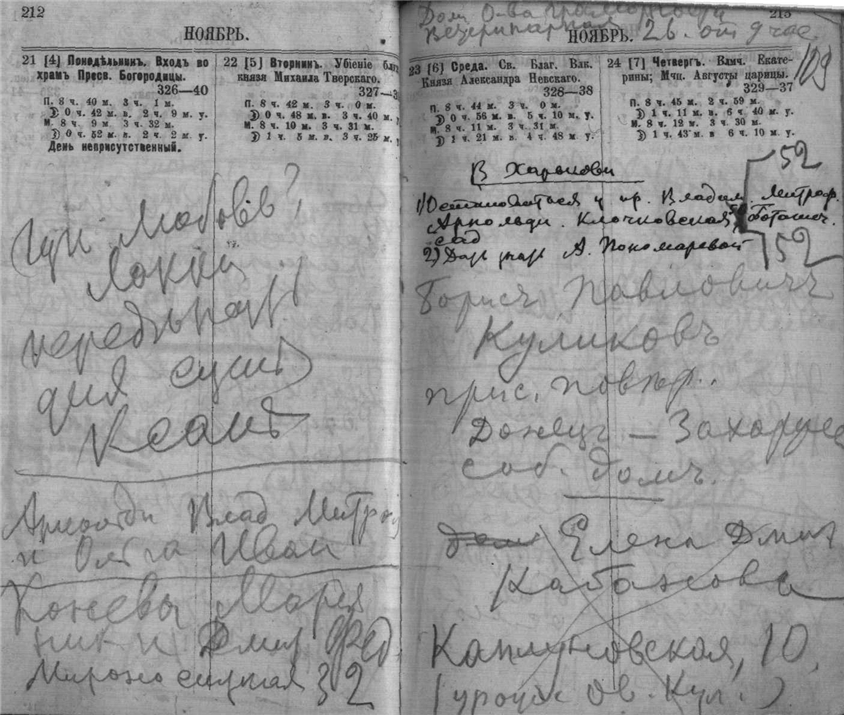 212
НОЯБРЬ.
21 [4] Понедѣльникъ. Входъ во
храмъ Пресв. Богородицы.
326—40
П. 8 ч. 40 м. 3 ч. 1 м.
0 ч. 42 м. в. 2 ч. 9 м. у.
М. 8 ч. 9 м. 3 ч. 32 м.
0 ч. 52 м. в. 2 ч. 2 м. у.
День неприсутственный.
22 [5] Вторникъ. Убіеніе благ.
князя Михаила Тверскаго.
327—3
П. 8 ч. 42 м. 3 ч. 0 м.
0 ч. 48 м. в. 3 ч. 40 м. у.
М. 8 ч. 10 м. 3 ч. 31 м.
1 ч. 5 м. в. 3 ч. 25 м. у.
любовь?
Локки
для
Ксаны
Арнольди Влад Митроф
и Ольга Иван
Мария
и Дмит Фед.
Мироносицкая 32
213
Дом О-ва
26. от 9 час
109
НОЯБРЬ.
23 [6] Среда. Св. Благ. Влк.
Князя Александра Невскаго.
328—38
П. 8 ч. 44 м. 3 ч. 0 м.
0 ч. 56 м. в. 5 ч. 10 м. у.
М. 8 ч. 11 м. 3 ч. 31 м.
1 ч. 21 м. в. 4 ч. 48 м. у.
24 [7] Четвергъ. Влмч. Екате-
рины; Мчн. Августы царицы.
329—37
П. 8 ч. 45 м. 2 ч. 59 м.
1 ч. 11 м. в. 6 ч. 40 м. у.
М. 8 ч. 12 м. 3 ч. 30 м.
1 ч. 43 м. в 6 ч. 10 м. у.
В Харькови
52
1) Остановиться у пр. Владим. Митроф.
Арнольди. Клочковская, Ботанич.
сад 52
2) А. Пономаревой
Борисъ Павловичъ
Куликовъ
прис. повѣр.
Донецъ — Захарж
соб. домъ.
Елена Дмит
Кабанова
Каплуновская, 10.